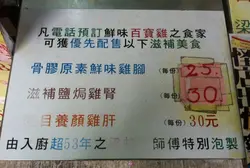 凡電話預訂鮮味百寶雞之食家
可獲優先配售以下滋補美食
骨膠原素鮮味雞腳 (每份) 25.
滋補鹽焗雞腎 (每份) 30
目養顏雞肝 (每份) 30元
由入廚超53年之 師傅特別泡製